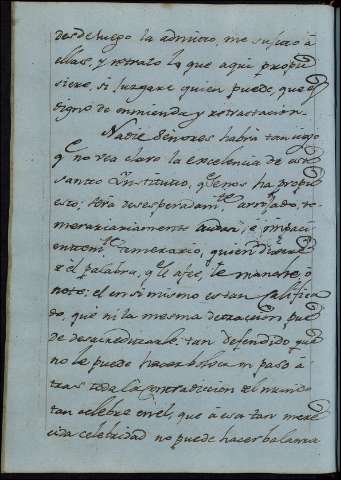 desde luego la admito, me sujeto à
ellas, y retrato lo que aqui propu
siere, si juzgare quien puede, que es
digno de enmienda y retractacion.
Nadie Señores habrà tan ciego
q.e no vea claro la excelencia de este
santo Instituto, q.e se nos ha propu
esto; serà desesperadam.te arrojado, te
merariamente audaz, è impaci
entem.te temerario, quien dixere
de èl palabra, q.e le afee, le manche, ò
note: el en si mismo es tan Califica
do, que ni la misma detraccion pue
de desacreditarle: tan defendido que
no le puede hacer bolber ni paso à
tras toda la contradicion del mundo
tan celebre en el, que à esta tan mere
cida celebridad no puede hacer balanza